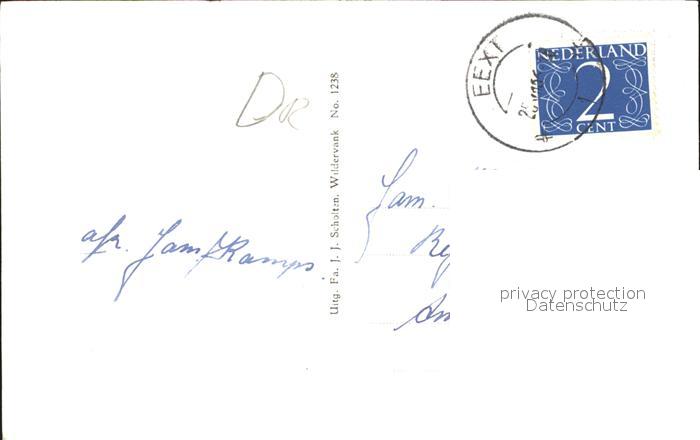 EEXT
NEDERLAND
2
CENT
Dr
Uitg. Fa. J. J. Scholten, Wildervank No. 1238
afz. Fam. Kamps.
Fam.
privacy protection
Datenschutz